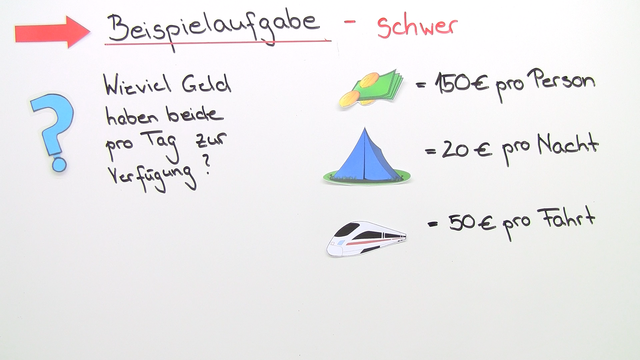 Beispielaufgabe - schwer
Wieviel Geld
haben beide
pro Tag zur
Verfügung?
= 150€ pro Person
= 20€ pro Nacht
= 50€ pro Fahrt